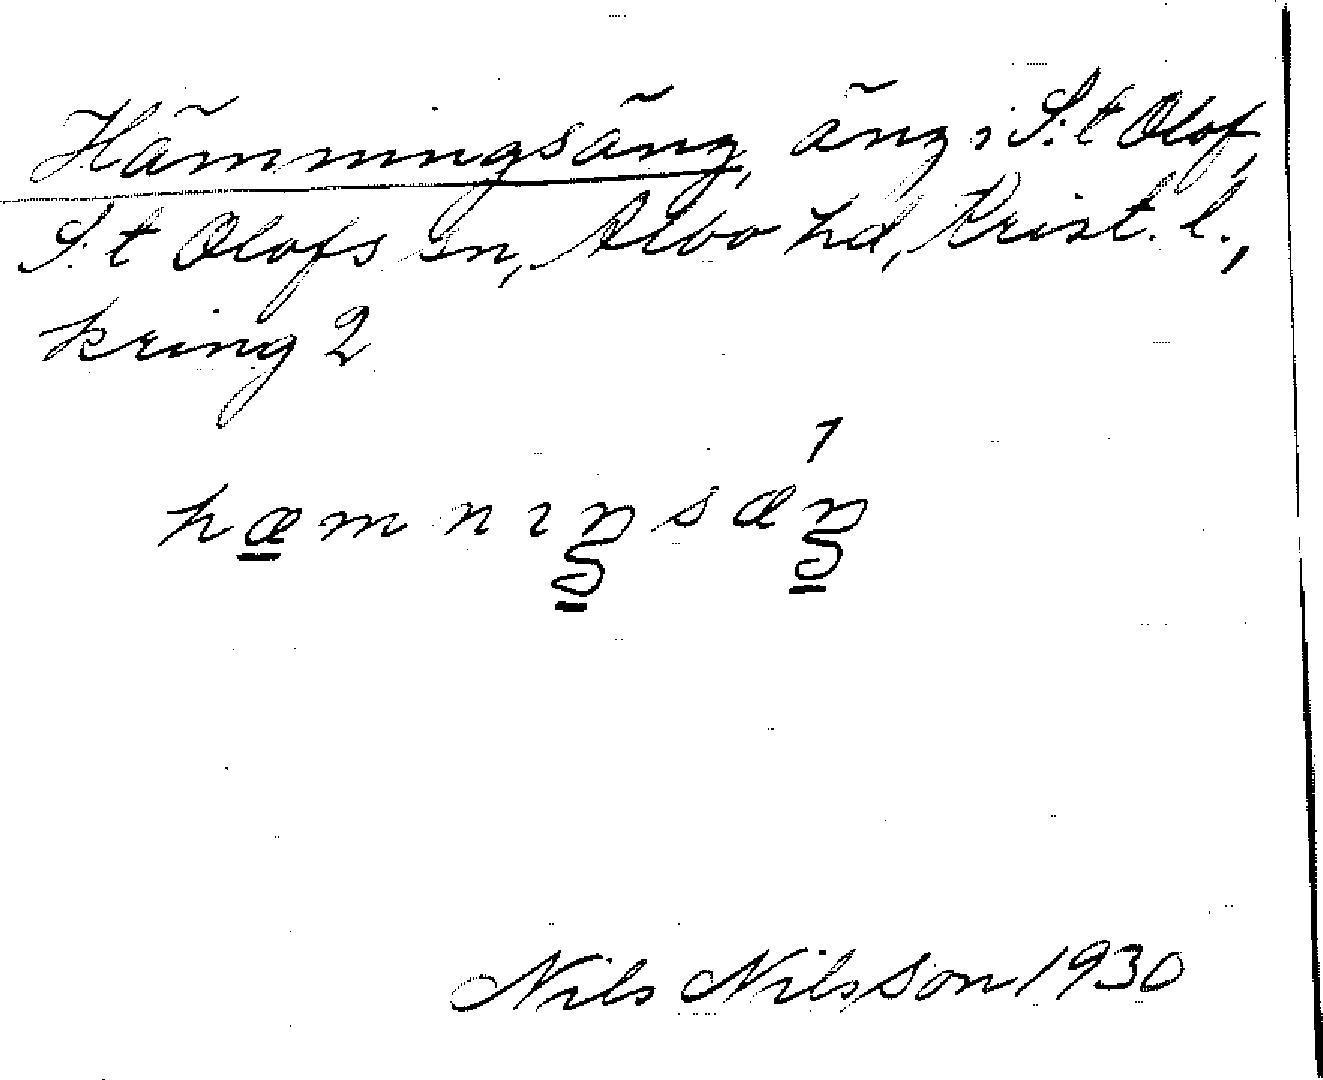 Hämningsäng, äng i S:t Olof,
S:t Olofs sn, Albo hd, Krist. l.,
kring 2
hæmnıŋsæŋ
Nils Nilsson 1930